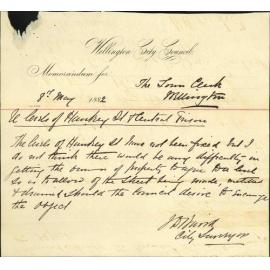 Wellington City Council
Memorandum for
The Town Clerk
8th May 1882 Wellington
Re Kerbs of Hankey St &
The Kerbs of Hankey St have not been fixed but I
do not think there would be any difficulty in
getting the owners of property to give the land
so as to allow of the Street being made,
& should the Council desire to
the Object
City Surveyor